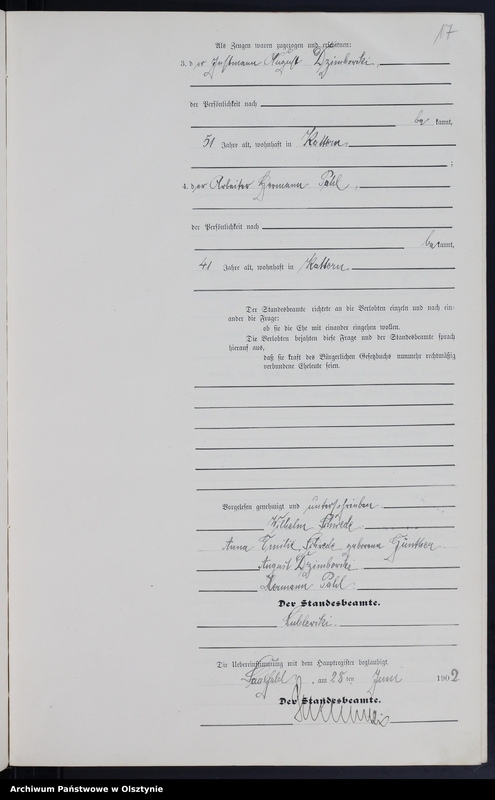 17
Als Zeugen waren zugezogen und erschienen:
3. der Instmann August Dzimborski
der Persönlichkeit nach
bekannt,
51 Jahre alt, wohnhaft in Kattern
;
4. der Arbeiter Hermann Pahl,
der Persönlichkeit nach
bekannt,
41 Jahre alt, wohnhaft in Kattern
Der Standesbeamte richtete an die Verlobten einzeln und nach ein-
ander die Frage:
ob sie die Ehe mit einander eingehen wollen.
Die Verlobten bejahten diese Frage und der Standesbeamte sprach
hierauf aus,
daß sie kraft des Bürgerlichen Gesetzbuchs nunmehr rechtmäßig
verbundene Eheleute seien.
Vorgelesen genehmigt und unterschrieben
Wilhelm Schwede
Anna Emilie Schwede geborene Günther
August Dzimborski
Hermann Pahl
Der Standesbeamte.
Die Uebereinstimmung mit dem Hauptregister beglaubigt.
Saalfeld, am 28 ten Juni 1902
Der Standesbeamte.
Archiwum Państwowe w Olsztynie